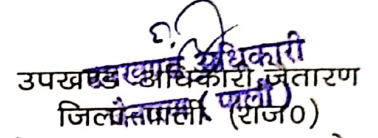 उपखण्ड अधिकारी
उपखण्ड अधिकारी जैतारण
जिला-पाली (राज०)